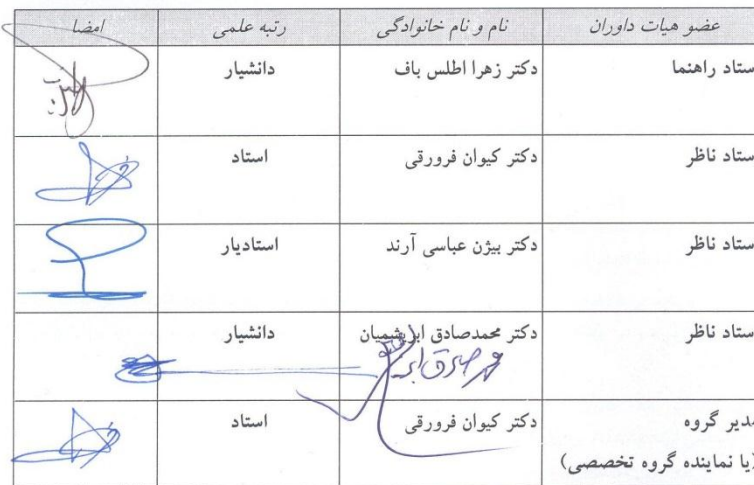 عضو هیات داوران نام و نام خانوادگی رتبه علمی امضا
ستاد راهنما دکتر زهرا اطلس باف دانشیار
ستاد ناظر دکتر کیوان فرورقی استاد
ستاد ناظر دکتر بیژن عباسی آرند استادیار
ستاد ناظر دکتر محمدصادق ابریشمیان دانشیار
مدیر گروه دکتر کیوان فرورقی استاد
(یا نماینده گروه تخصصی)